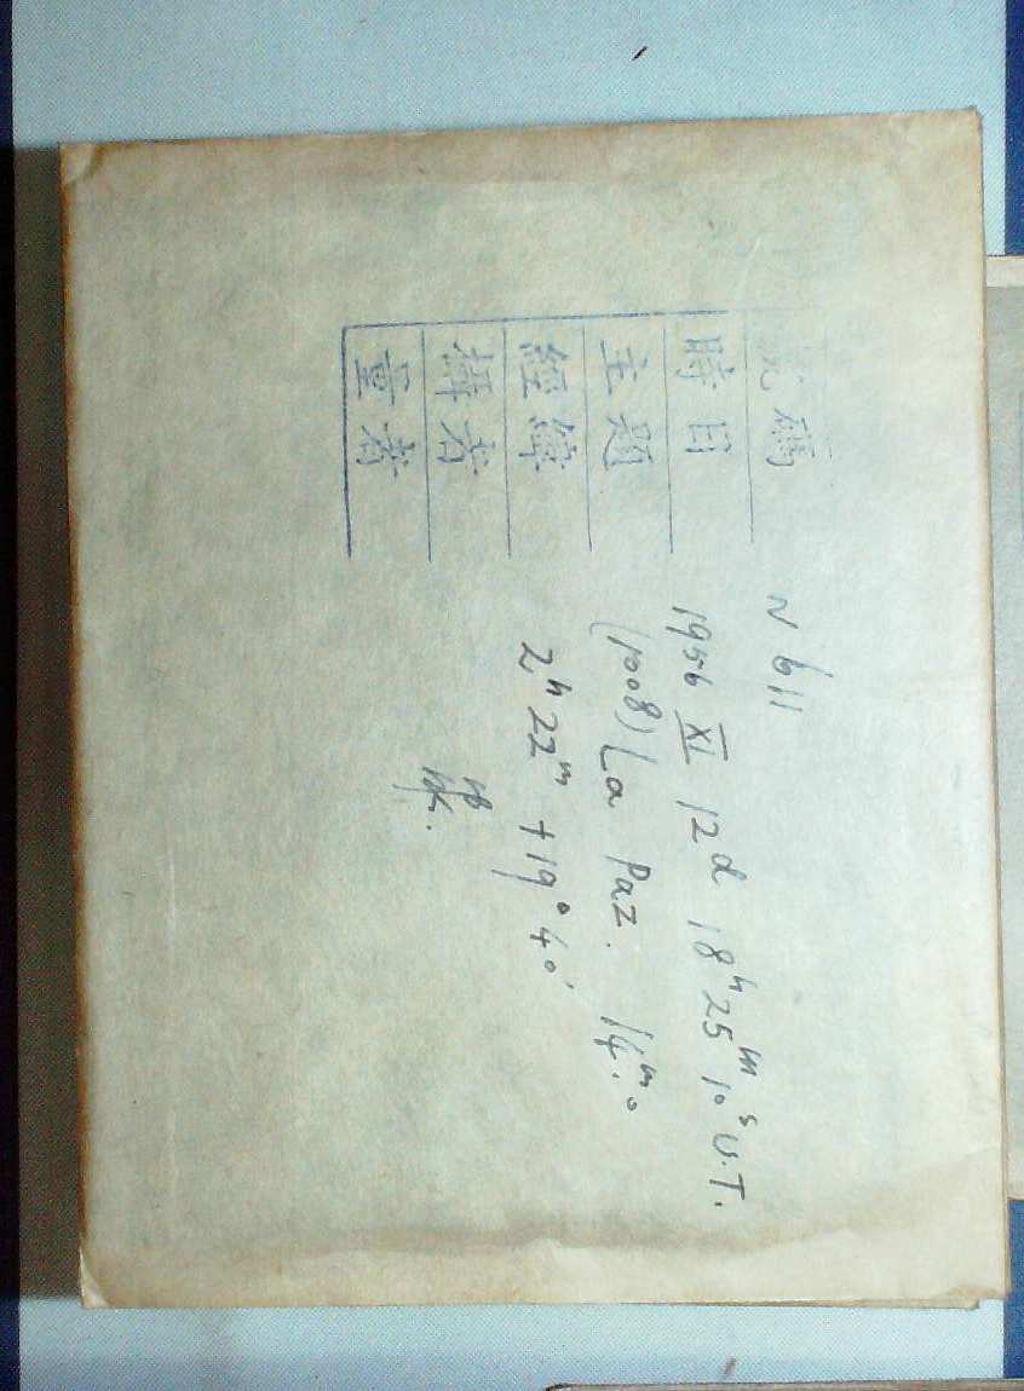 號碼 N 611
時日 1956 XI 12d 18h 25m 10s U.T.
主題 (1008) La Paz. 14m.0
經緯 2h 22m +19° 40'
攝者
量者